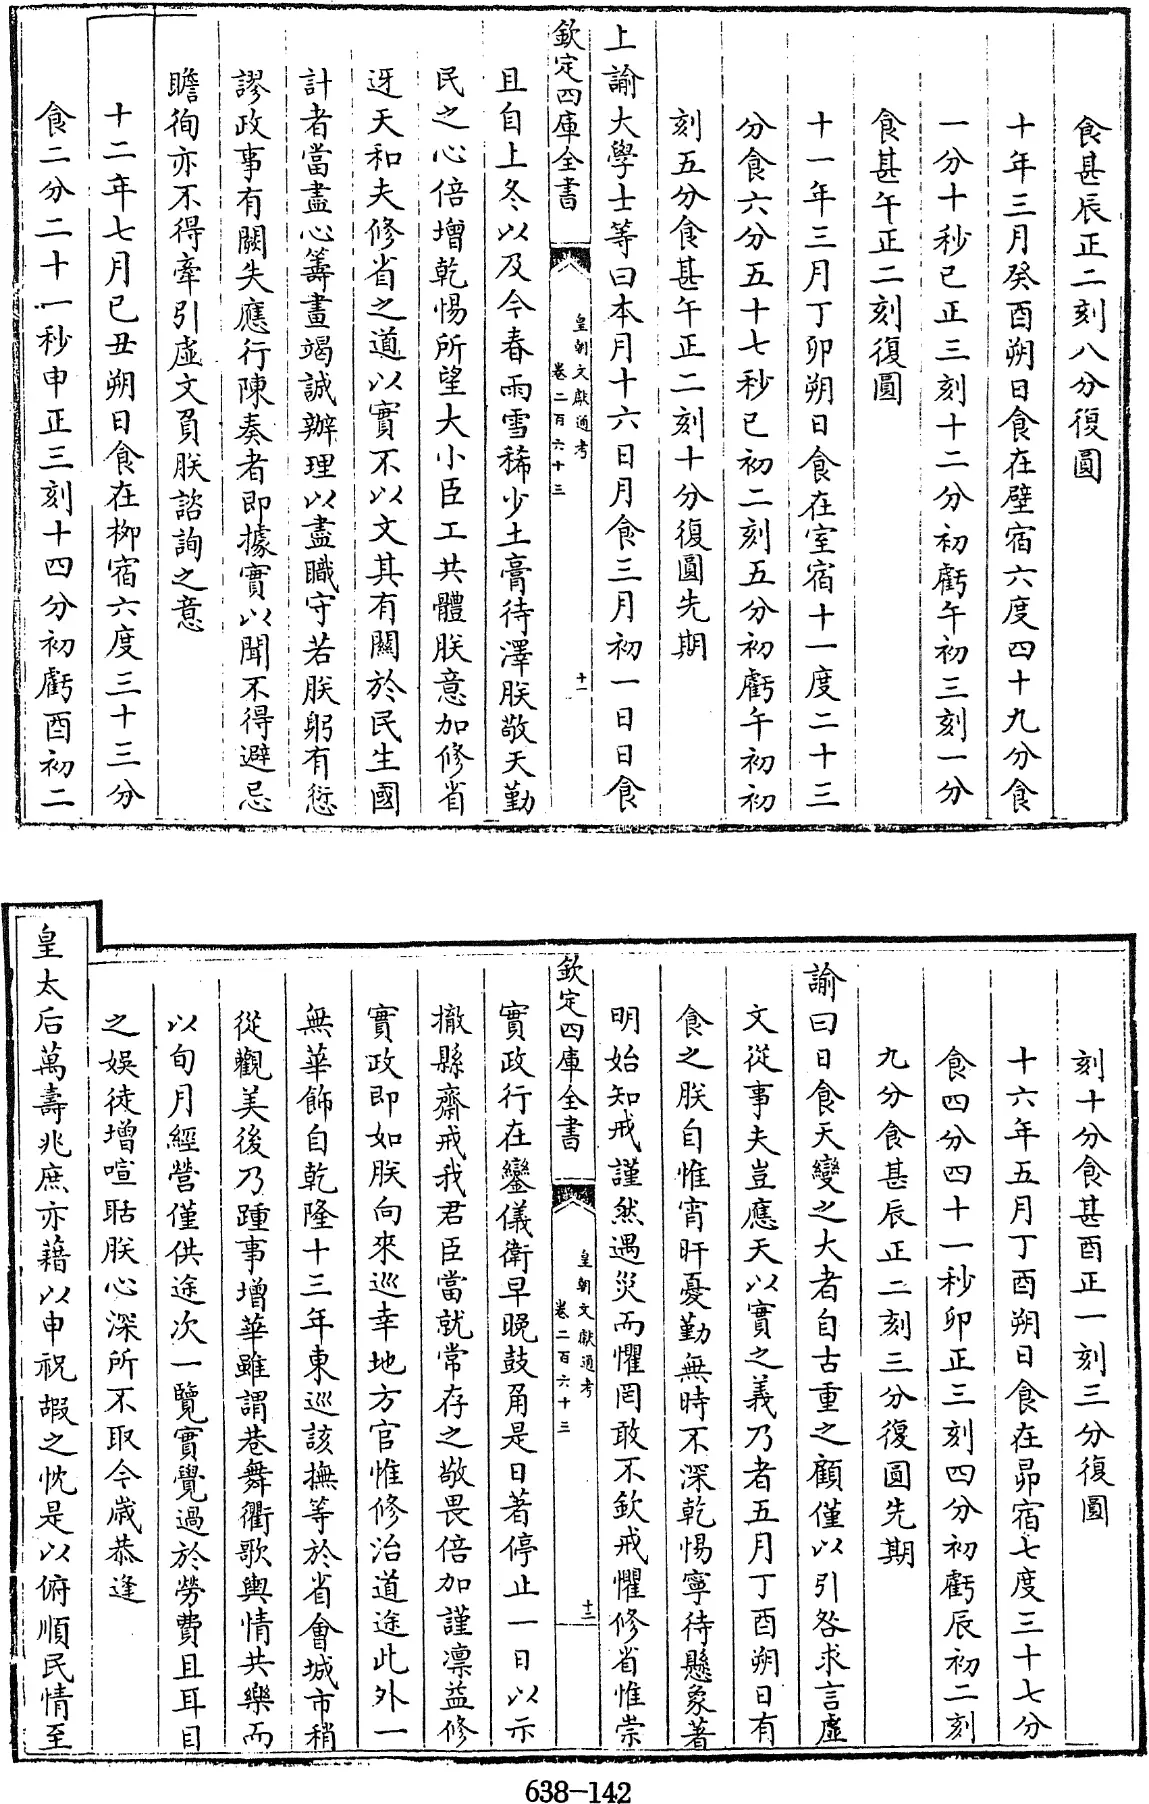 食甚辰正二刻八分復圓
十年三月癸酉朔日食在壁宿六度四十九分食
一分十秒巳正三刻十二分初虧午初三刻一分
食甚午正二刻復圓
十一年三月丁卯朔日食在室宿十一度二十三
分食六分五十七秒巳初二刻五分初虧午初初
刻五分食甚午正二刻十分復圓先期
上諭大學士等曰本月十六日月食三月初一日日食
欽定四庫全書
皇朝文獻通考
卷二百六十三
十一
且自上冬以及今春雨雪稀少土膏待澤朕敬天勤
民之心倍增乾惕所望大小臣工共體朕意加修省
迓天和夫修省之道以實不以文其有關於民生國
計者當盡心籌畫竭誠辦理以盡職守若朕躬有愆
謬政事有闕失應行陳奏者即據實以聞不得避忌
瞻徇亦不得牽引虛文負朕諮詢之意
十二年七月己丑朔日食在柳宿六度三十三分
食二分二十一秒申正三刻十四分初虧酉初二
刻十分食甚酉正一刻三分復圓
十六年五月丁酉朔日食在昴宿七度三十七分
食四分四十一秒卯正三刻四分初虧辰初二刻
九分食甚辰正二刻三分復圓先期
諭曰日食天變之大者自古重之顧僅以引咎求言虛
文從事夫豈應天以實之義乃者五月丁酉朔日有
食之朕自惟宵旰憂勤無時不深乾惕寧待懸象著
明始知戒謹然遇災而懼罔敢不欽戒懼修省惟崇
欽定四庫全書
皇朝文獻通考
卷二百六十三
十二
實政行在鑾儀衛早晚鼓角是日著停止一日以示
撤縣齋戒我君臣當就常存之敬畏倍加謹凛益修
實政即如朕向來巡幸地方官惟修治道途此外一
無華飾自乾隆十三年東巡該撫等於省會城市稍
從觀美後乃踵事增華雖謂巷舞衢歌輿情共樂而
以旬月經營僅供途次一覽實覺過於勞費且耳目
之娛徒增喧聒朕心深所不取今歲恭逢
皇太后萬壽兆庶亦藉以申祝嘏之忱是以俯順民情至
638-142